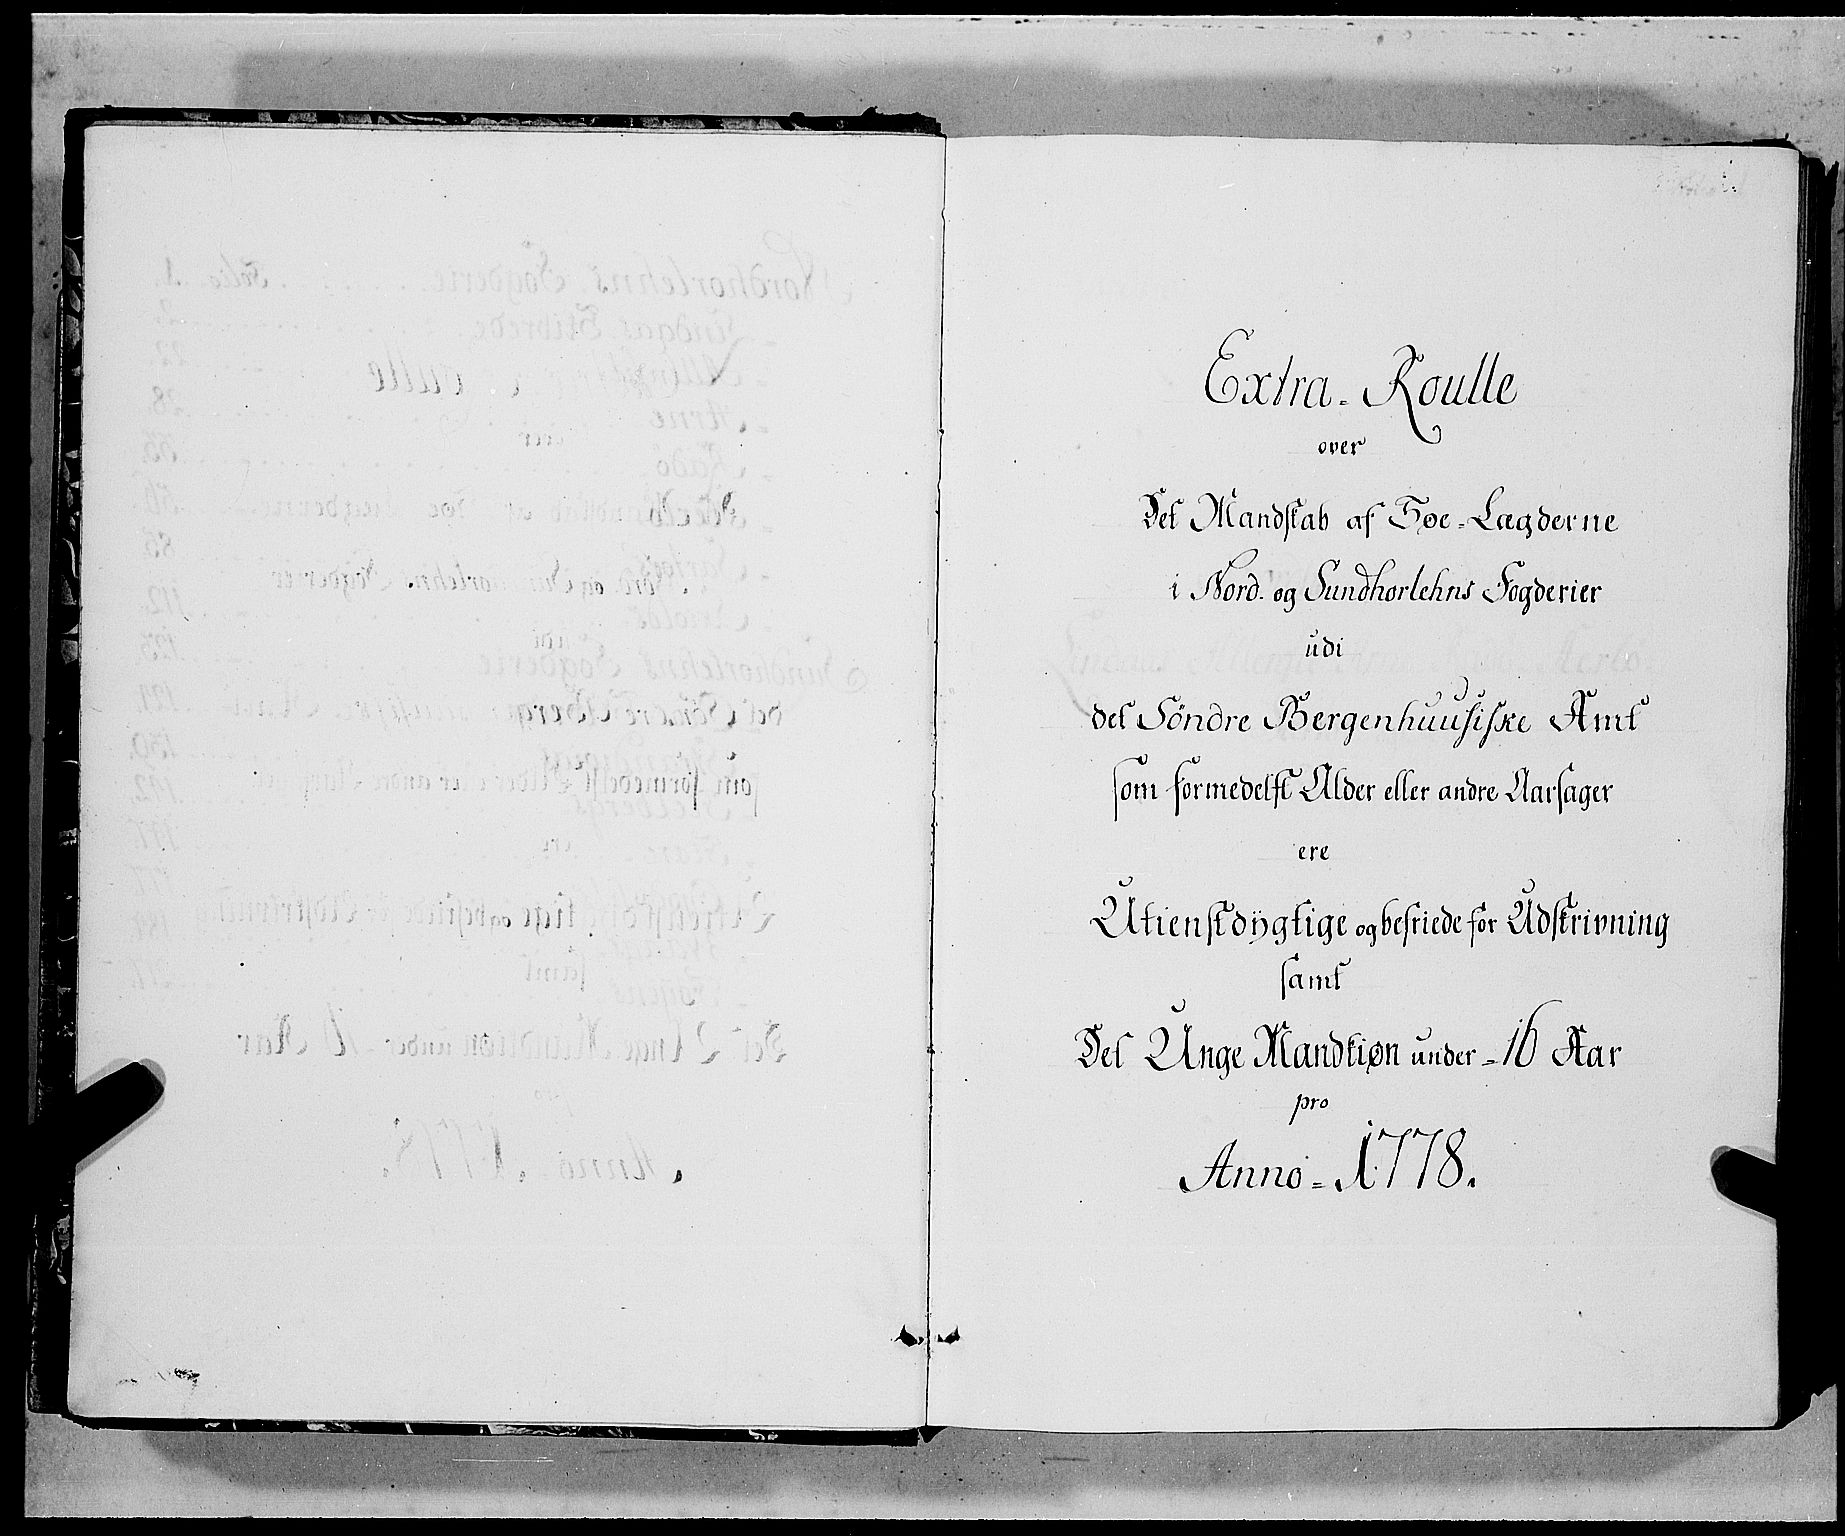 Extra = Roulle
over
Det Mandskab af Søe = Lægderne
i Nord- og Sundhorlehns Fogderier
udi
det Søndre Bergenhuusiske Amt
som formedelst Alder eller andre Aarsager
ere
Utienstdygtige og befriede for Udskrivning
samt
Det Unge Mandkiøn under = 16 Aar
pro
Anno = 1778.